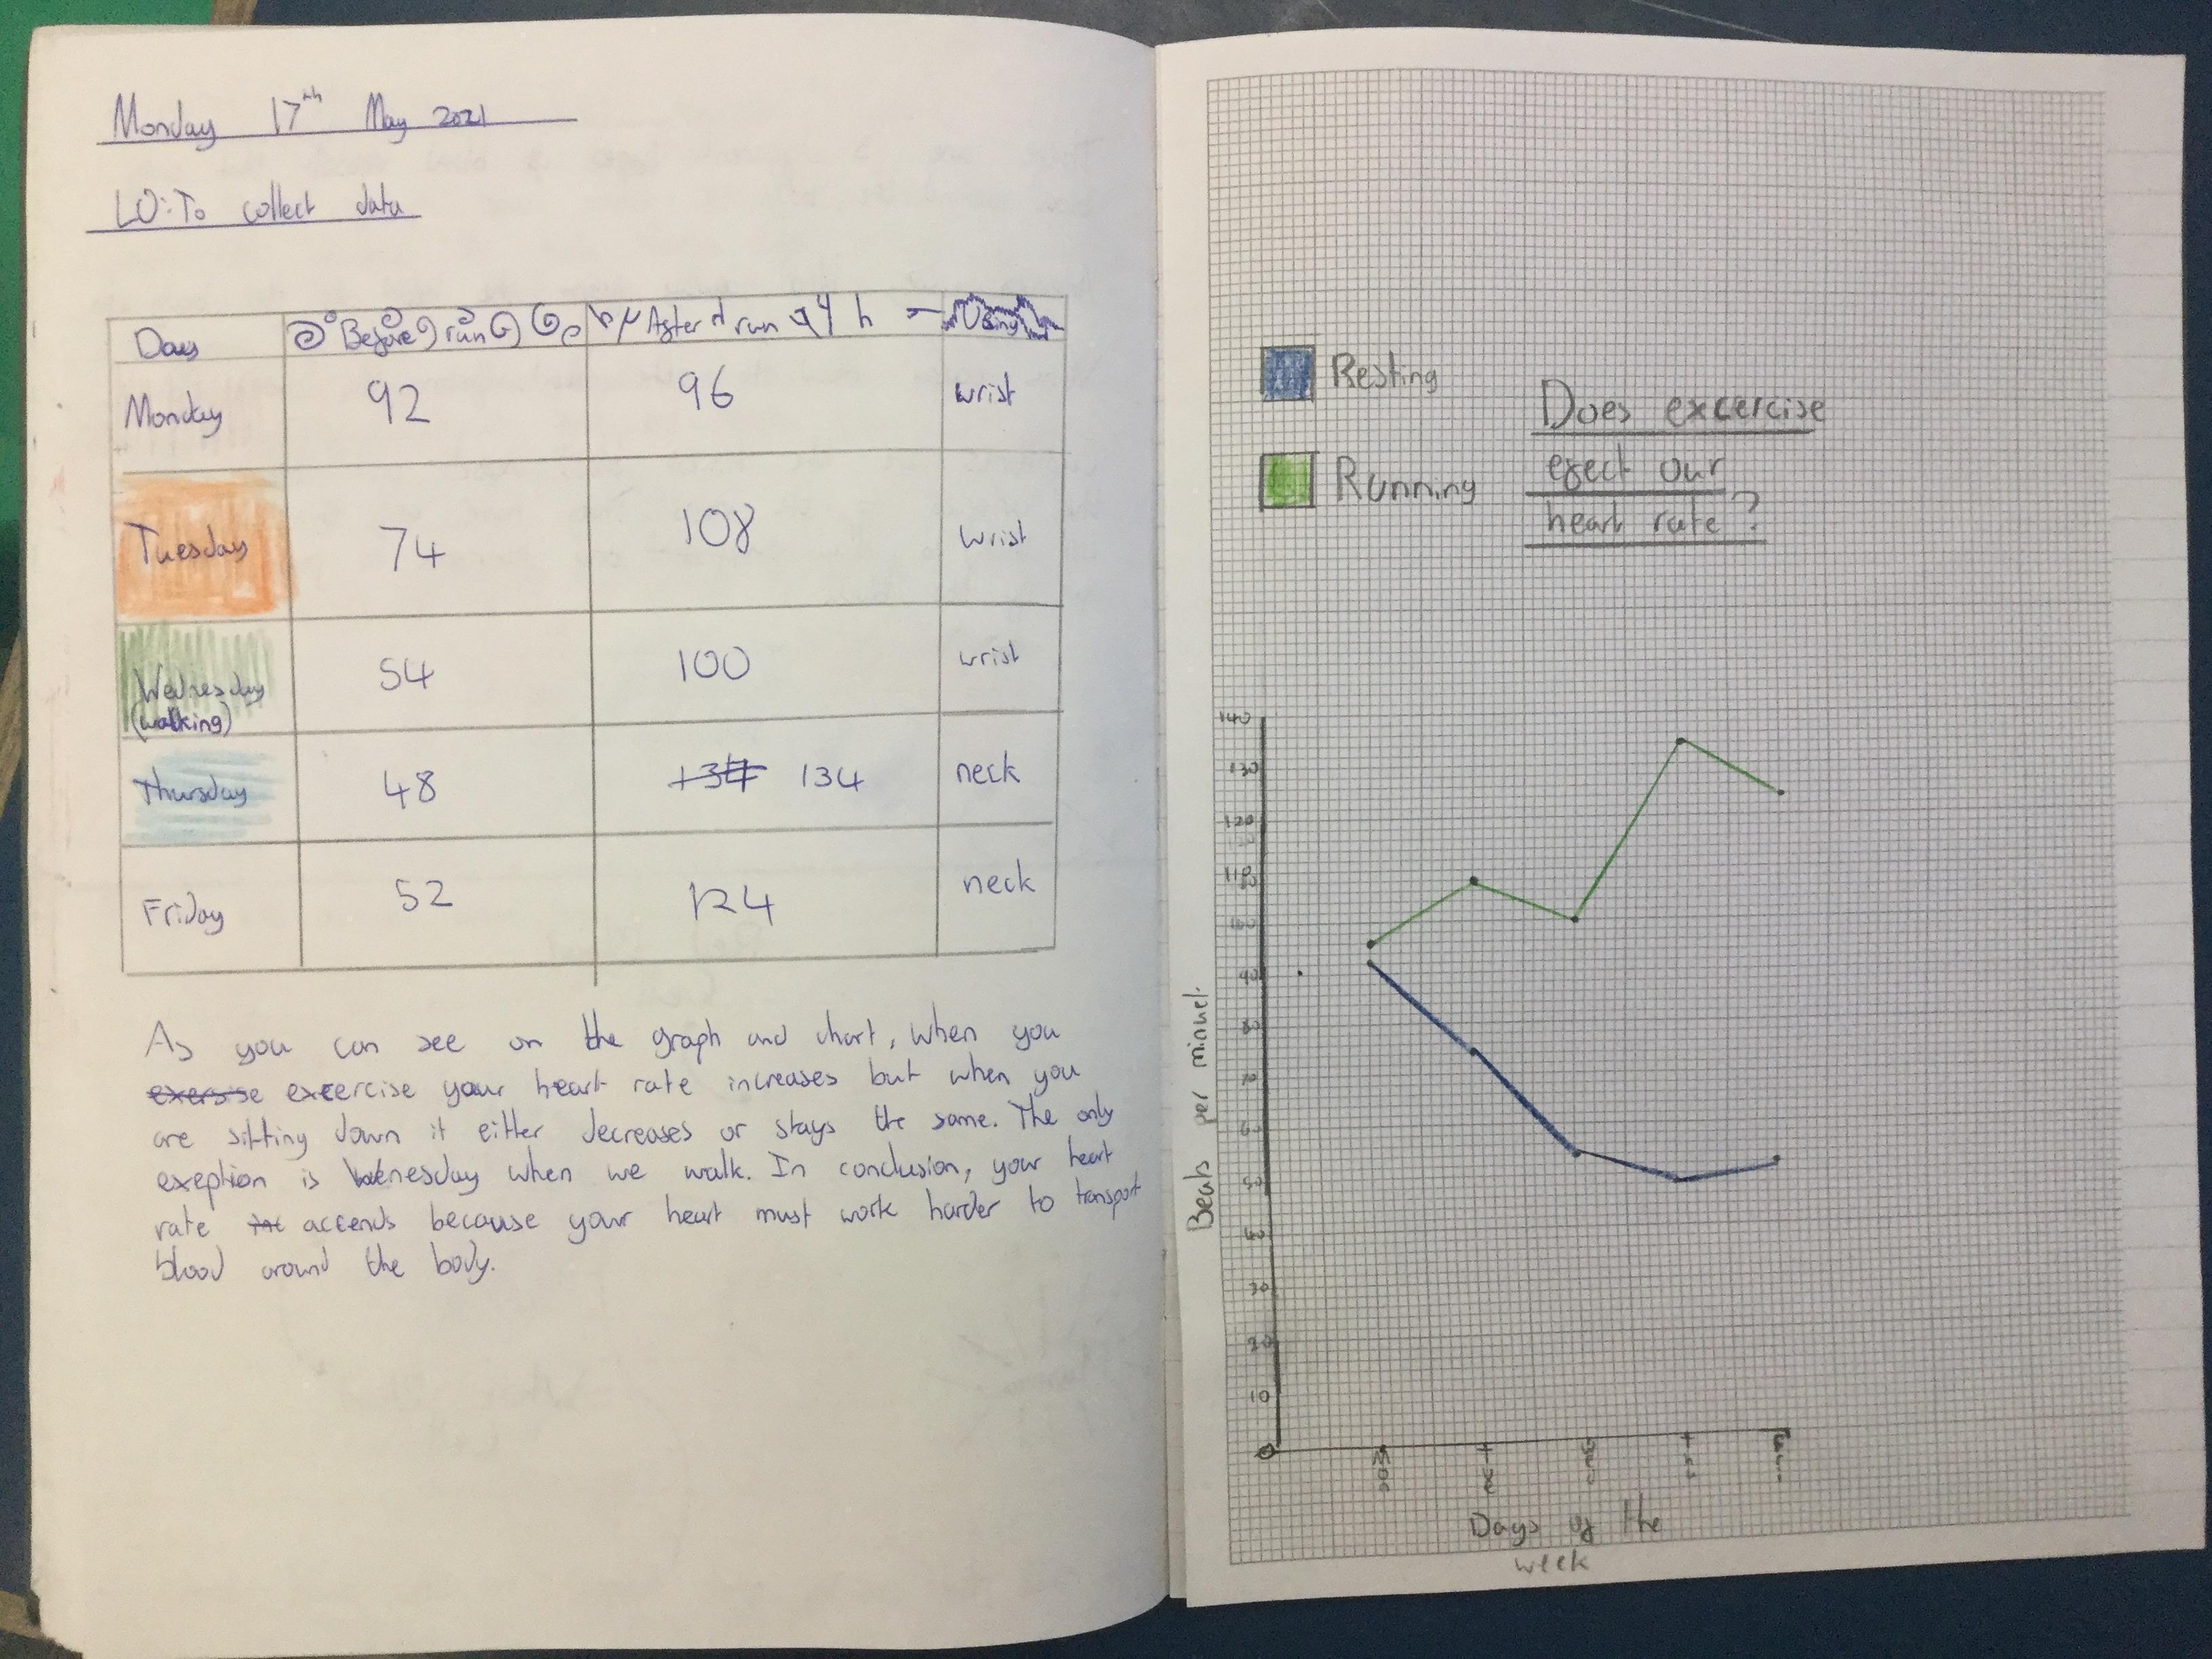 Monday 17th May 2021
LO: To collect data
Days Before run After run Using
Monday 92 96 wrist
Tuesday 74 108 wrist
Wednesday 54 100 wrist
(walking)
Thursday 48 134 134 neck
Friday 52 124 neck
As you can see on the graph and chart, when you
exersise excercise your heart rate increases but when you
are sitting down it either decreases or stays the same. The only
exeption is Wenesday when we walk. In conclusion, your heart
rate accends because your heart must work harder to transport
blood around the body.
Resting
Running
Does excercise
efect our
heart rate?
140
130
120
110
100
90
80
70
60
50
40
30
20
10
0
Beats per minuet
Mon Tue Wed Thu Fri
Days of the
week